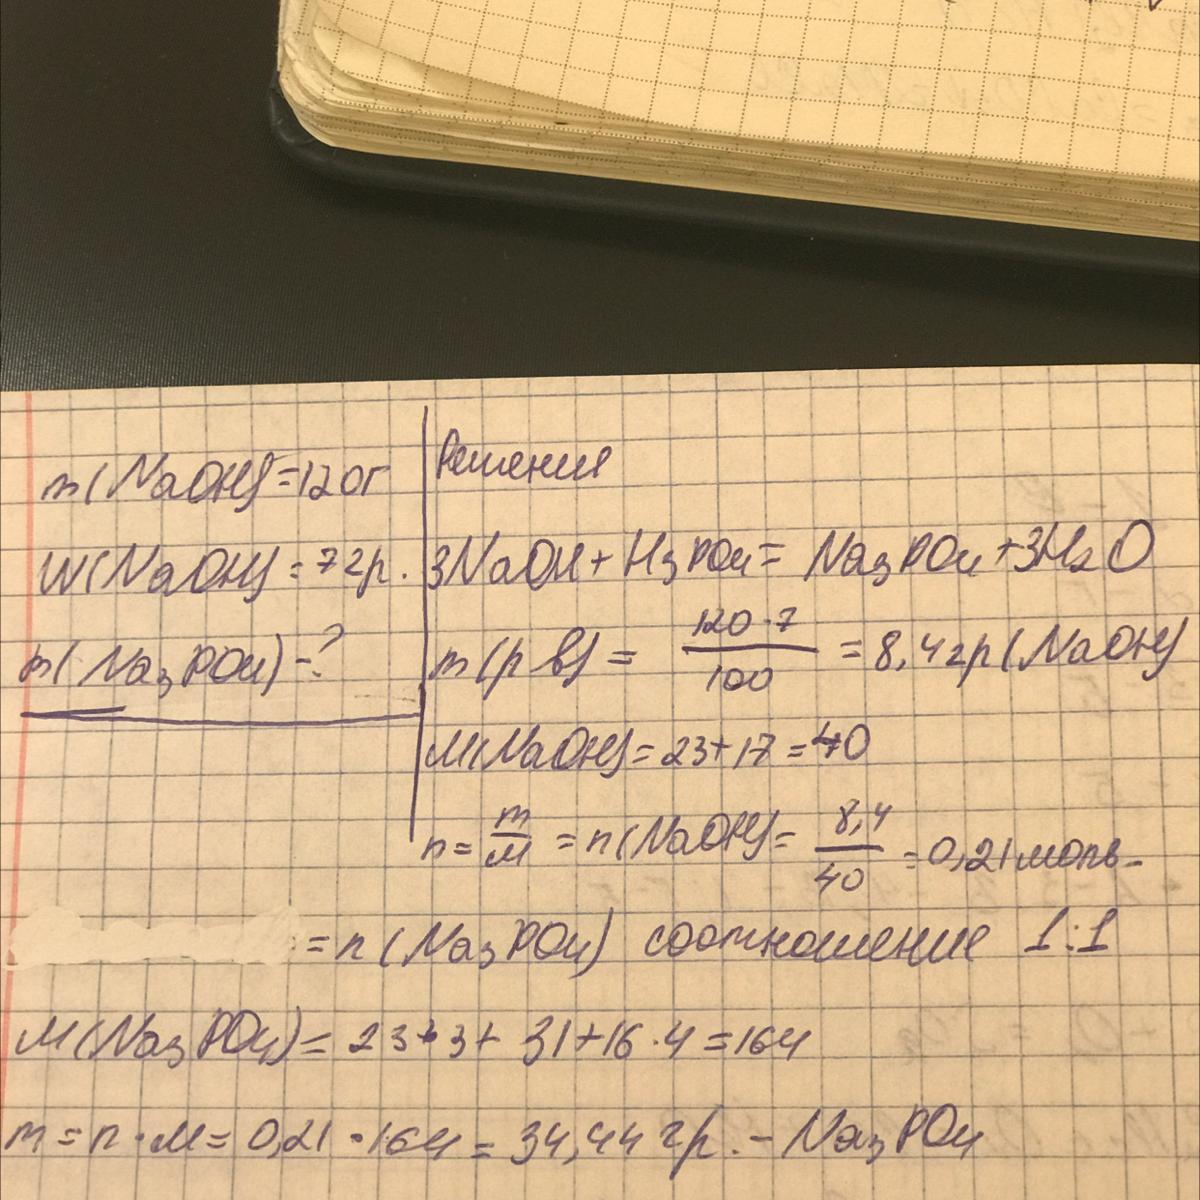 m(NaOH)=120г
W(NaOH)=7гр.
m(Na3PO4)-?
Решение
3NaOH+H3PO4=Na3PO4+3H2O
m(р в)=120·7/100=8,4гр(NaOH)
M(NaOH)=23+17=40
n=m/M=n(NaOH)=8,4/40=0,21моль-
=n(Na3PO4) соотношение 1:1
M(Na3PO4)=23+3+31+16·4=164
m=n·M=0,21·164=34,44гр.-Na3PO4